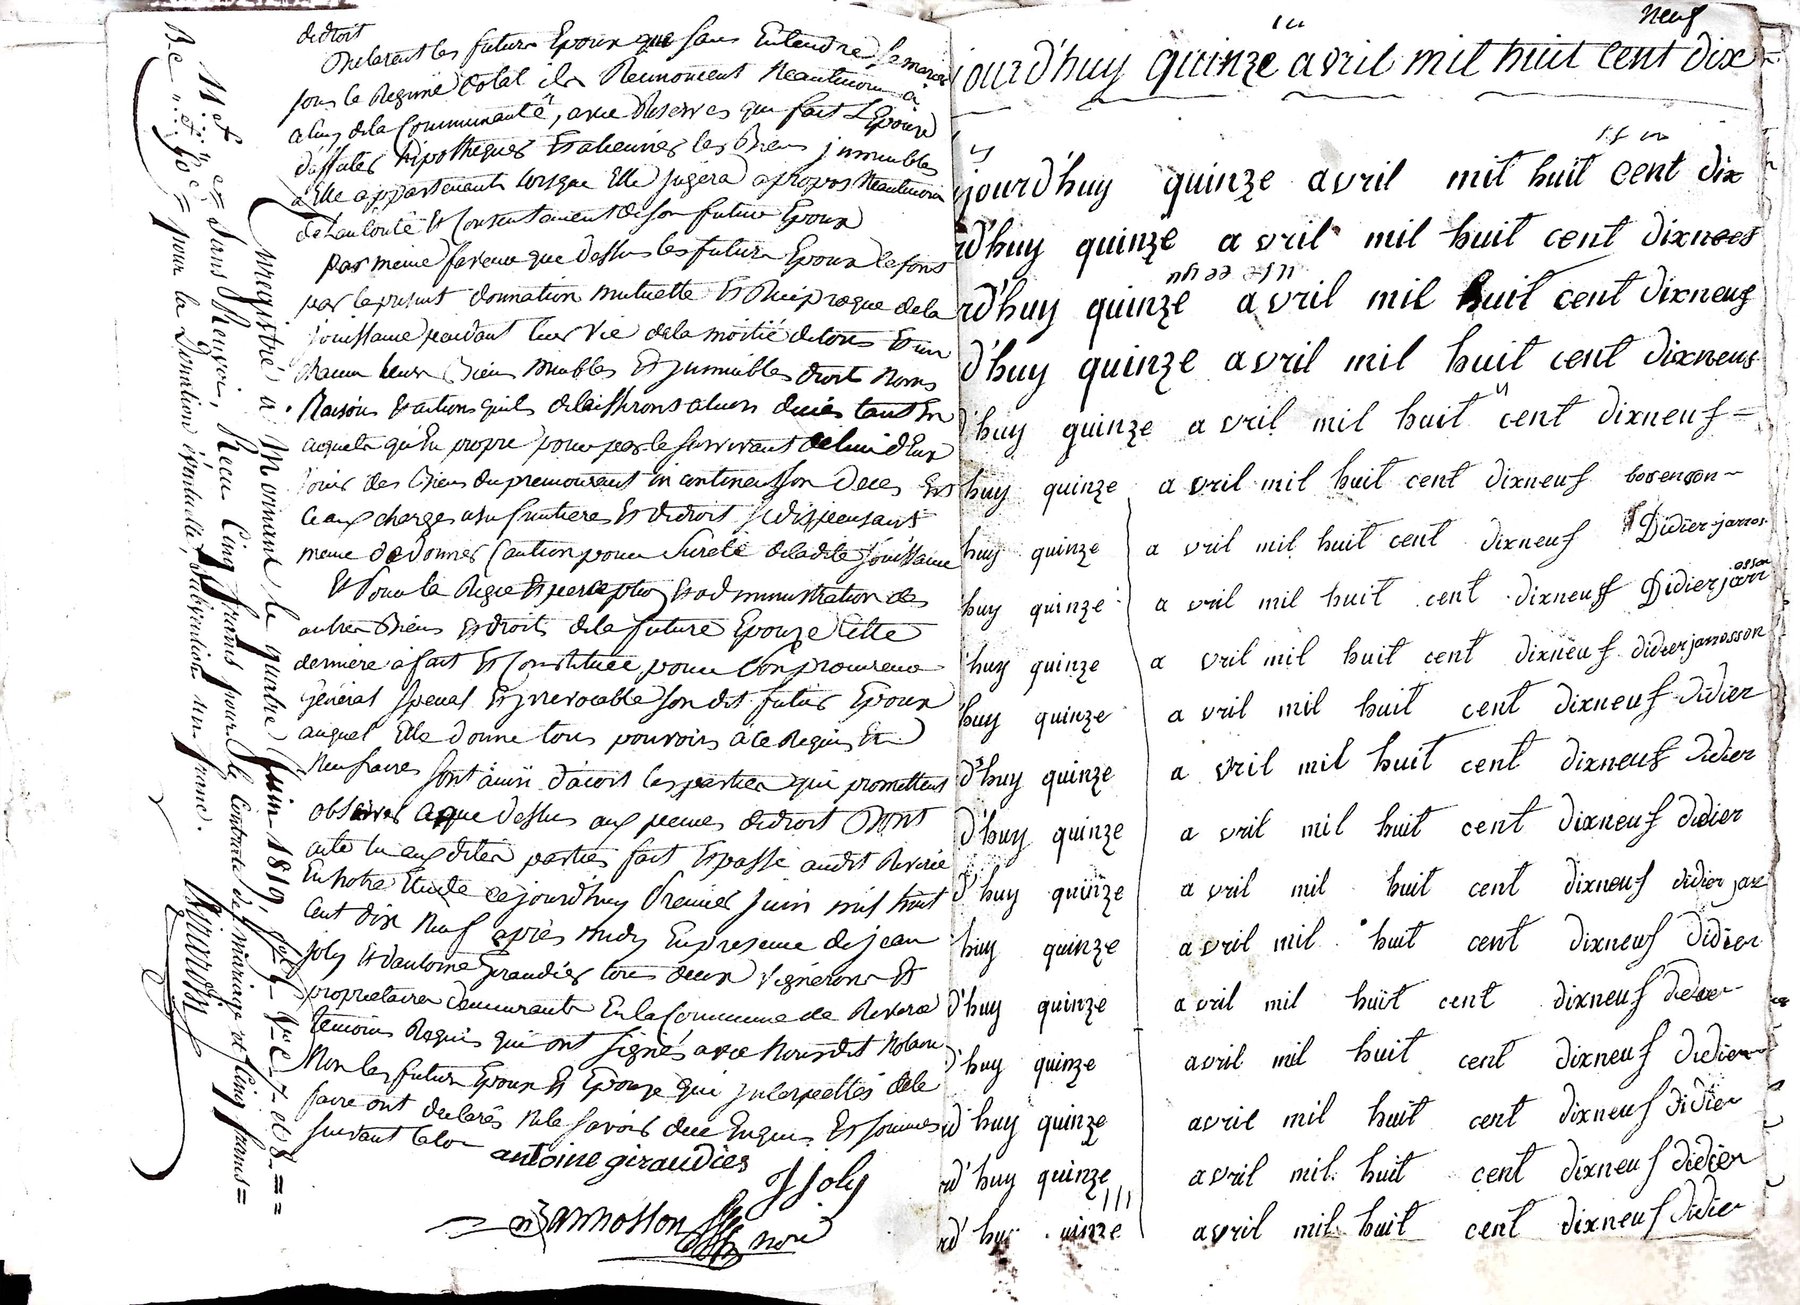 de droit
Declarent les futurs Epoux que sans Entendre se marier
sous le Regime Dotal ils Renoncent Neantmoins à
de la Communauté, avec Reserves que fait L'Epouse
hipothequer Et alienner les Biens jmmeubles
à Elle appartenants lorsque Elle jugera apropos Neantmoins
Et Consentement de son futur Epoux
par meme faveur que dessus les futurs Epoux se font
par le present donnation mutuelle Et Reciproque de la
jouissance pendant leur vie de la moitié de tous Et un
chacun leurs Biens meubles Et jmmeubles droits Noms
Raisons Et actions qu'ils delaisseront aleur deces tant En
acquets qu'En propre pour par le survivant de lui d'Eux
jouir des Biens du premourant in continent son Deces Et
ce aux charges usufruitieres Et de droit se dispensant
meme de donner Caution pour Sureté de la dite jouissance
Et Pour la Regie Et perception Et administration des
autres Biens Et droits de la future Epouze Cette
derniere a fait Et Constitué pour son procureur
general special Et jrrevocable son dit futur Epoux
auquel Elle donne tous pouvoirs a ce Requis Et
Neufaires sont ainsi d'acort les parties qui promettent
observer ce que dessus aux peines de droit Dont
acte lu aux dites parties fait Et passé audit
En notre Etude ce jourd'huy Premier juin mil huit
Cent dix Neuf après midy En presence de jean
joly Et d'antoine Giraudier tous deux Vignerons Et
proprietaires demeurants En la Commune de
temoins Requis qui ont signés avec Nousdit Notaire
Non les futurs Epoux Et Epouze qui jnterpellés de le
faire ont declarés Ne le savoir due Enquis Et sommés
suivant la loi
antoine giraudier
J Joly
Jannosson
Nore
Enregistré à Mornant le quatre juin 1819,
et 8 ==
Sans Renvoi, Recu Cinq francs pour le Contrat de mariage et Cinq francs =
pour la Donation éventuelle, un franc.
neuf
jourd'huy quinze avril mil huit cent dix =
jourd'huy quinze avril mil huit cent dix
rd'huy quinze avril mil huit cent dixneef
rd'huy quinze avril mil huit cent dixneuf
d'huy quinze avril mil huit cent dixneuf
d'huy quinze avril mil huit cent dixneuf =
huy quinze avril mil huit cent dixneuf
huy quinze avril mil huit cent dixneuf Didier jarros
huy quinze avril mil huit cent dixneuf Didier jarrosson
huy quinze avril mil huit cent dixneuf didier jarrosson
huy quinze avril mil huit cent dixneuf didier
d'huy quinze avril mil huit cent dixneuf didier
d'huy quinze avril mil huit cent dixneuf didier
d'huy quinze avril mil huit cent dixneuf didier jar
huy quinze avril mil huit cent dixneuf didier
d'huy quinze avril mil huit cent dixneuf didier
d'huy quinze avril mil huit cent dixneuf didier
d'huy quinze avril mil huit cent dixneuf didier
rd'huy quinze avril mil huit cent dixneuf didier
rd'huy uinze avril mil huit cent dixneuf didier